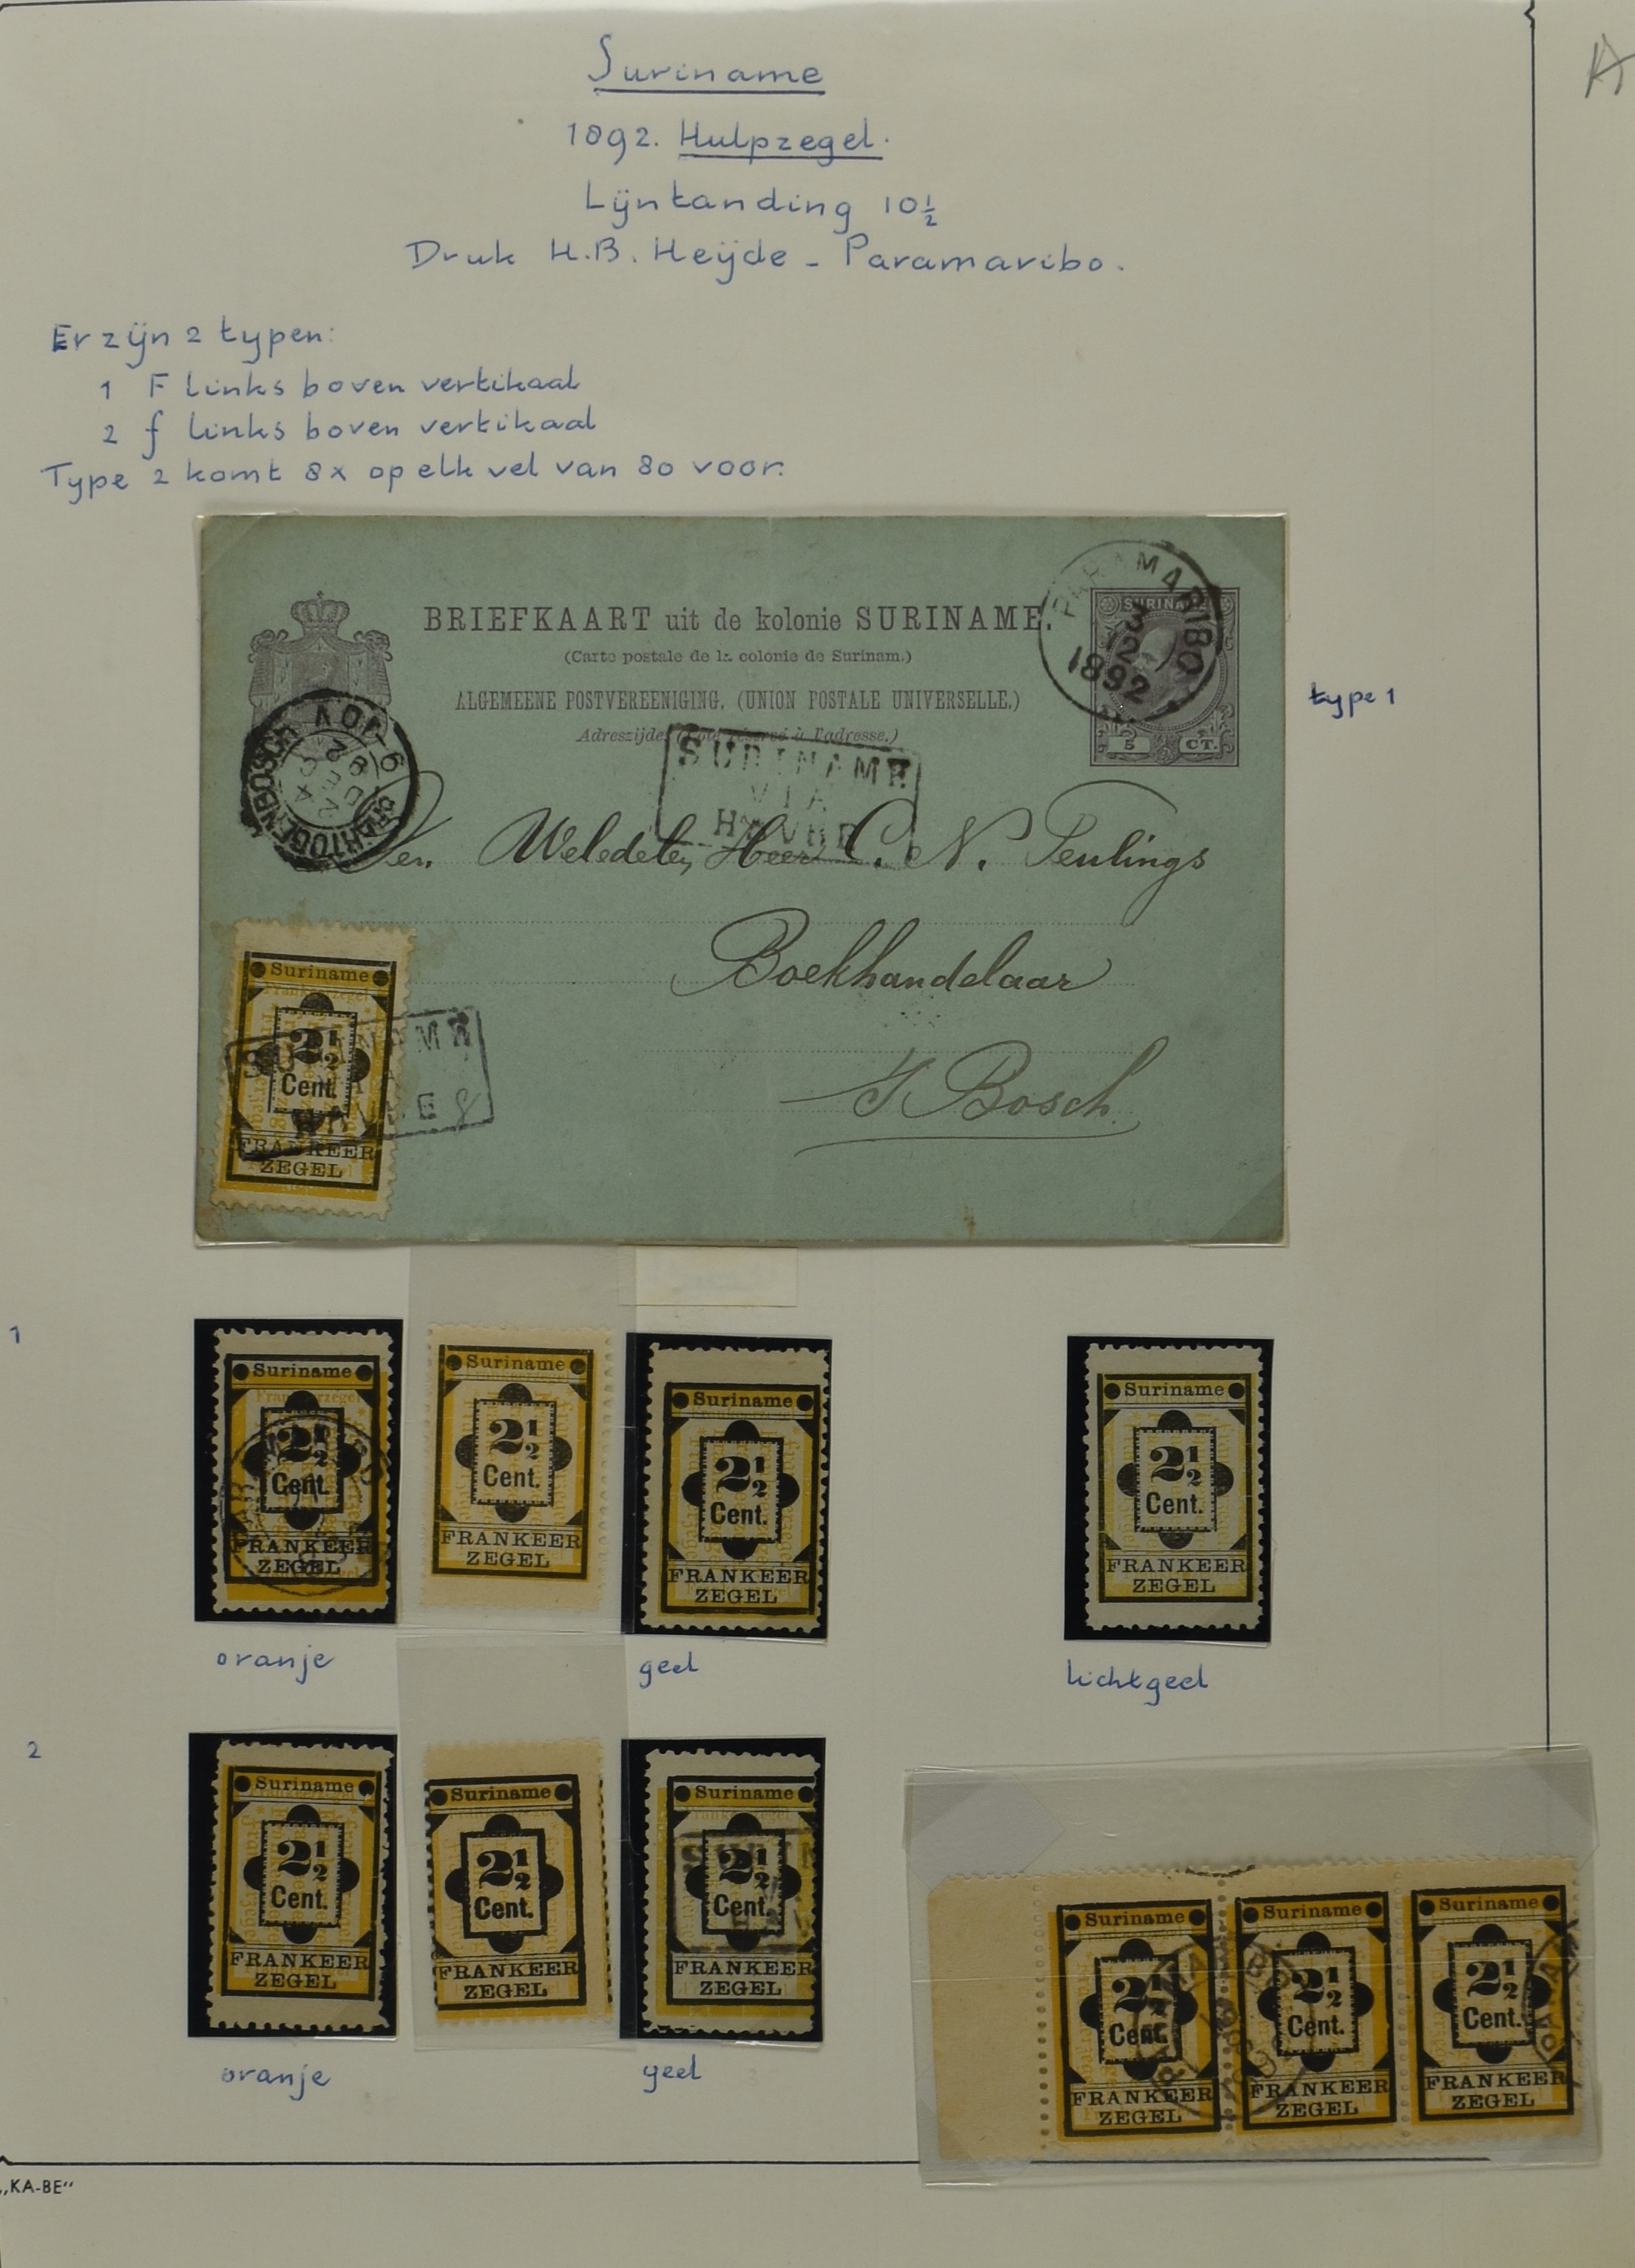 Suriname
1892. Hulpzegel.
Lijntanding 10½
Druk H.B. Heijde - Paramaribo.
A
Er zijn 2 typen:
1 F links boven vertikaal
2 f links boven vertikaal
Type 2 komt 8x op elk vel van 80 voor.
BRIEFKAART uit de kolonie SURINAME.
(Carte postale de la colonie de Surinam.)
ALGEMEENE POSTVEREENIGING. (UNION POSTALE UNIVERSELLE.)
Adreszijde. (Côté réservé à l'adresse.)
PARAMARIBO
3
2
1892
SURINAME
5 CT.
type 1
'S HERTOGENBOSCH
6-10V
24
92
SURINAME
VIA
HAVRE
Den Weledelen Heer C. N. Teulings
Boekhandelaar
's Bosch.
Suriname
2½
Cent.
FRANKEER
ZEGEL
1
Suriname
2½
Cent.
FRANKEER
ZEGEL
Suriname
2½
Cent.
FRANKEER
ZEGEL
Suriname
2½
Cent.
FRANKEER
ZEGEL
Suriname
2½
Cent.
FRANKEER
ZEGEL
oranje geel lichtgeel
2
Suriname
2½
Cent.
FRANKEER
ZEGEL
Suriname
2½
Cent.
FRANKEER
ZEGEL
Suriname
2½
Cent.
FRANKEER
ZEGEL
oranje geel
Suriname
2½
Cent.
FRANKEER
ZEGEL
Suriname
2½
Cent.
FRANKEER
ZEGEL
Suriname
2½
Cent.
FRANKEER
ZEGEL
„KA-BE"